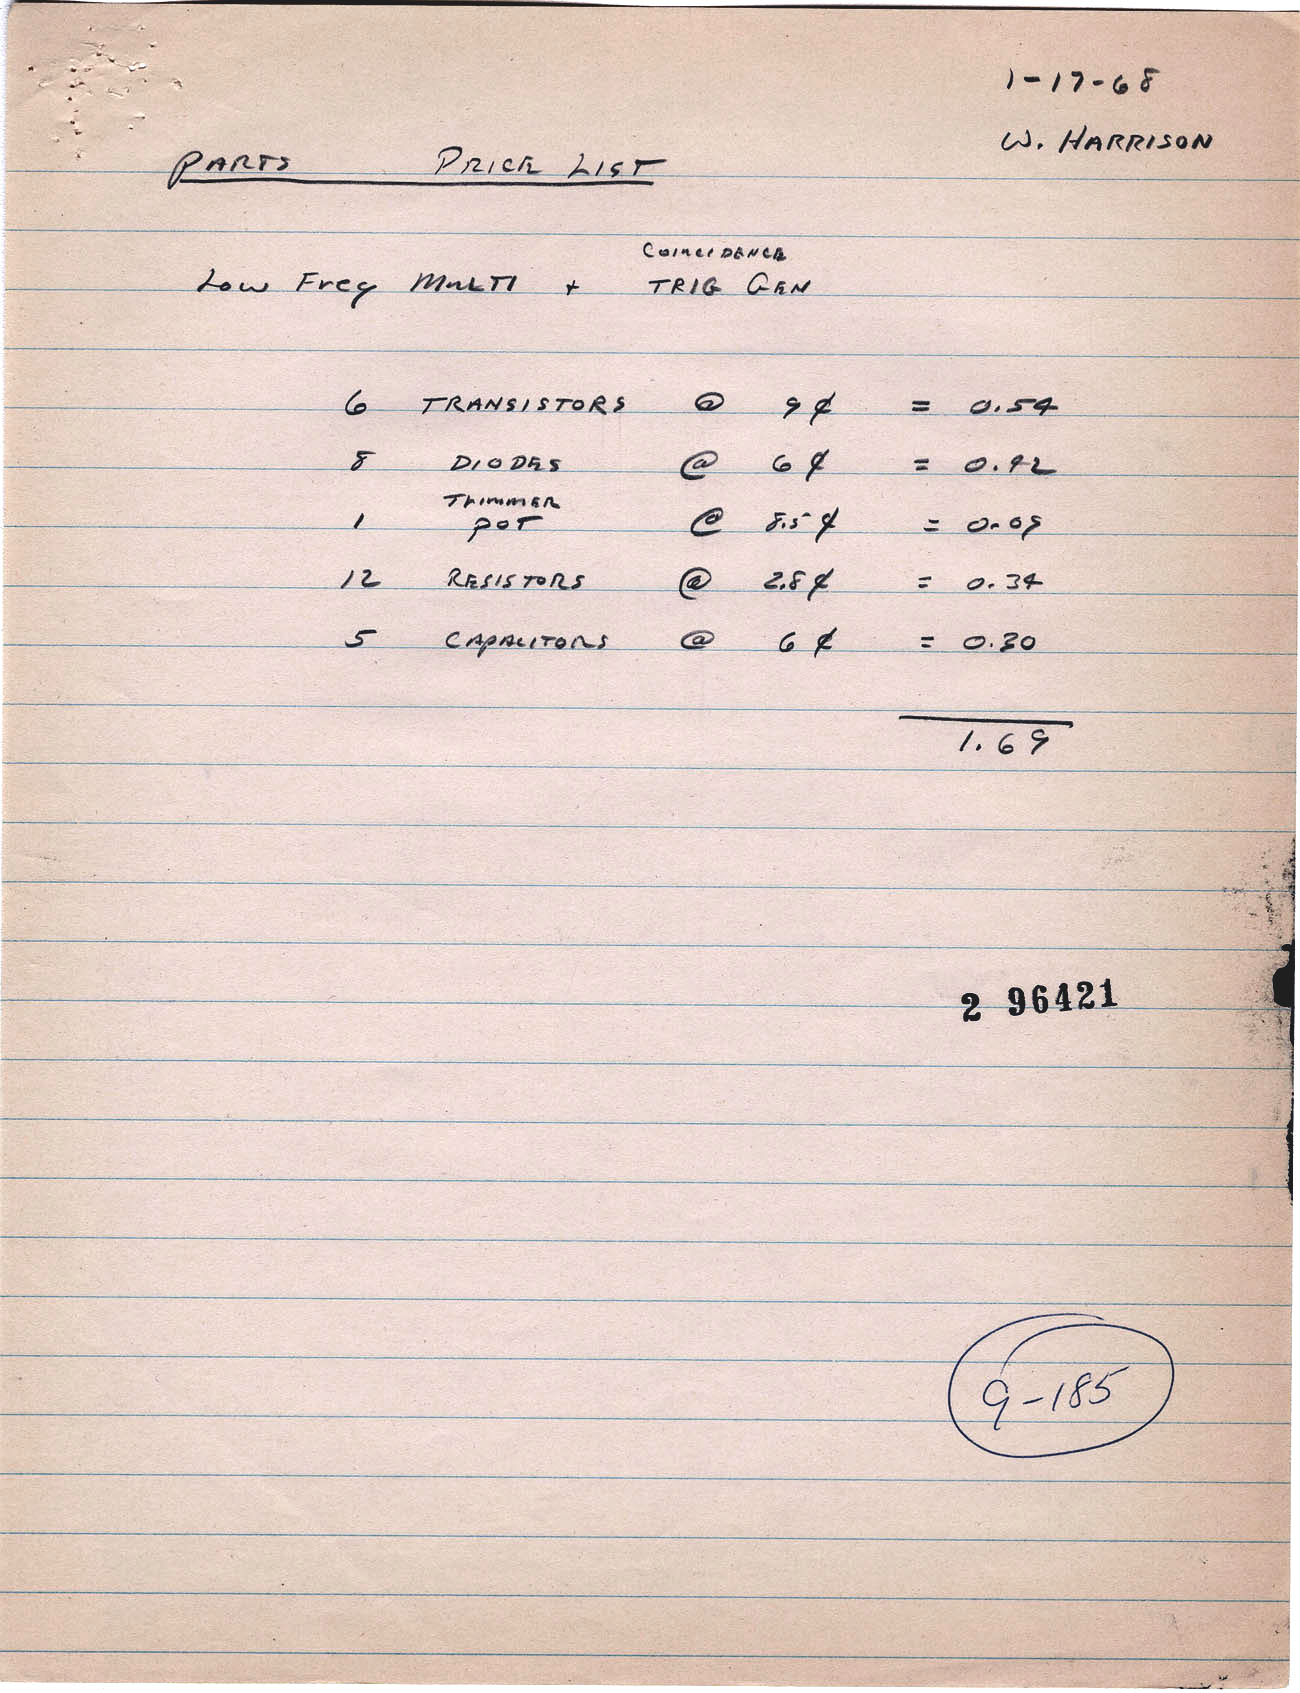 1-17-68
W. HARRISON
PARTS PRICE LIST
COINCIDENCE
Low Freq MULTI + TRIG GEN
6 TRANSISTORS @ 9¢ = 0.54
8 DIODES @ 6¢ = 0.42
TRIMMER
1 POT @ 8.5¢ = 0.09
12 RESISTORS @ 2.8¢ = 0.34
5 CAPACITORS @ 6¢ = 0.30
1.69
2 96421
9-185